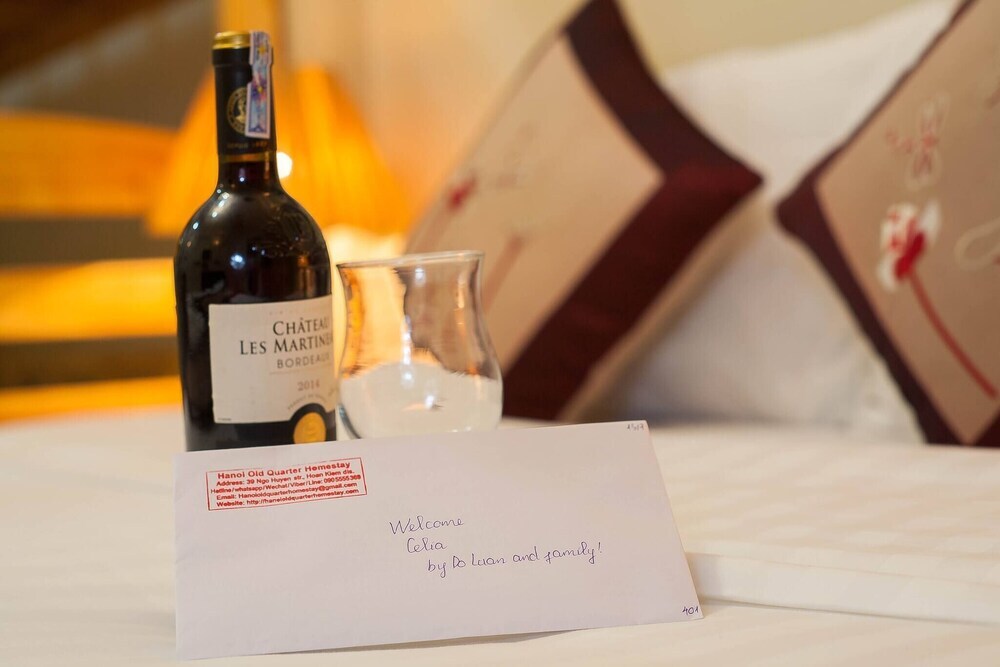 CHÂTEAU
LES MARTINE
BORDEAUX
2014
Hanoi Old Quarter Homestay
Address: 39 Ngo Huyen str., Hoan Kiem dis.
Hotline/whatsapp/Wechat/Viber/Line: 0905555369
Email: Hanoioldquarterhomestay@gmail.com
Website: http://hanoioldquarterhomestay.com
Welcome
Celia
by Do Luan and family!
401